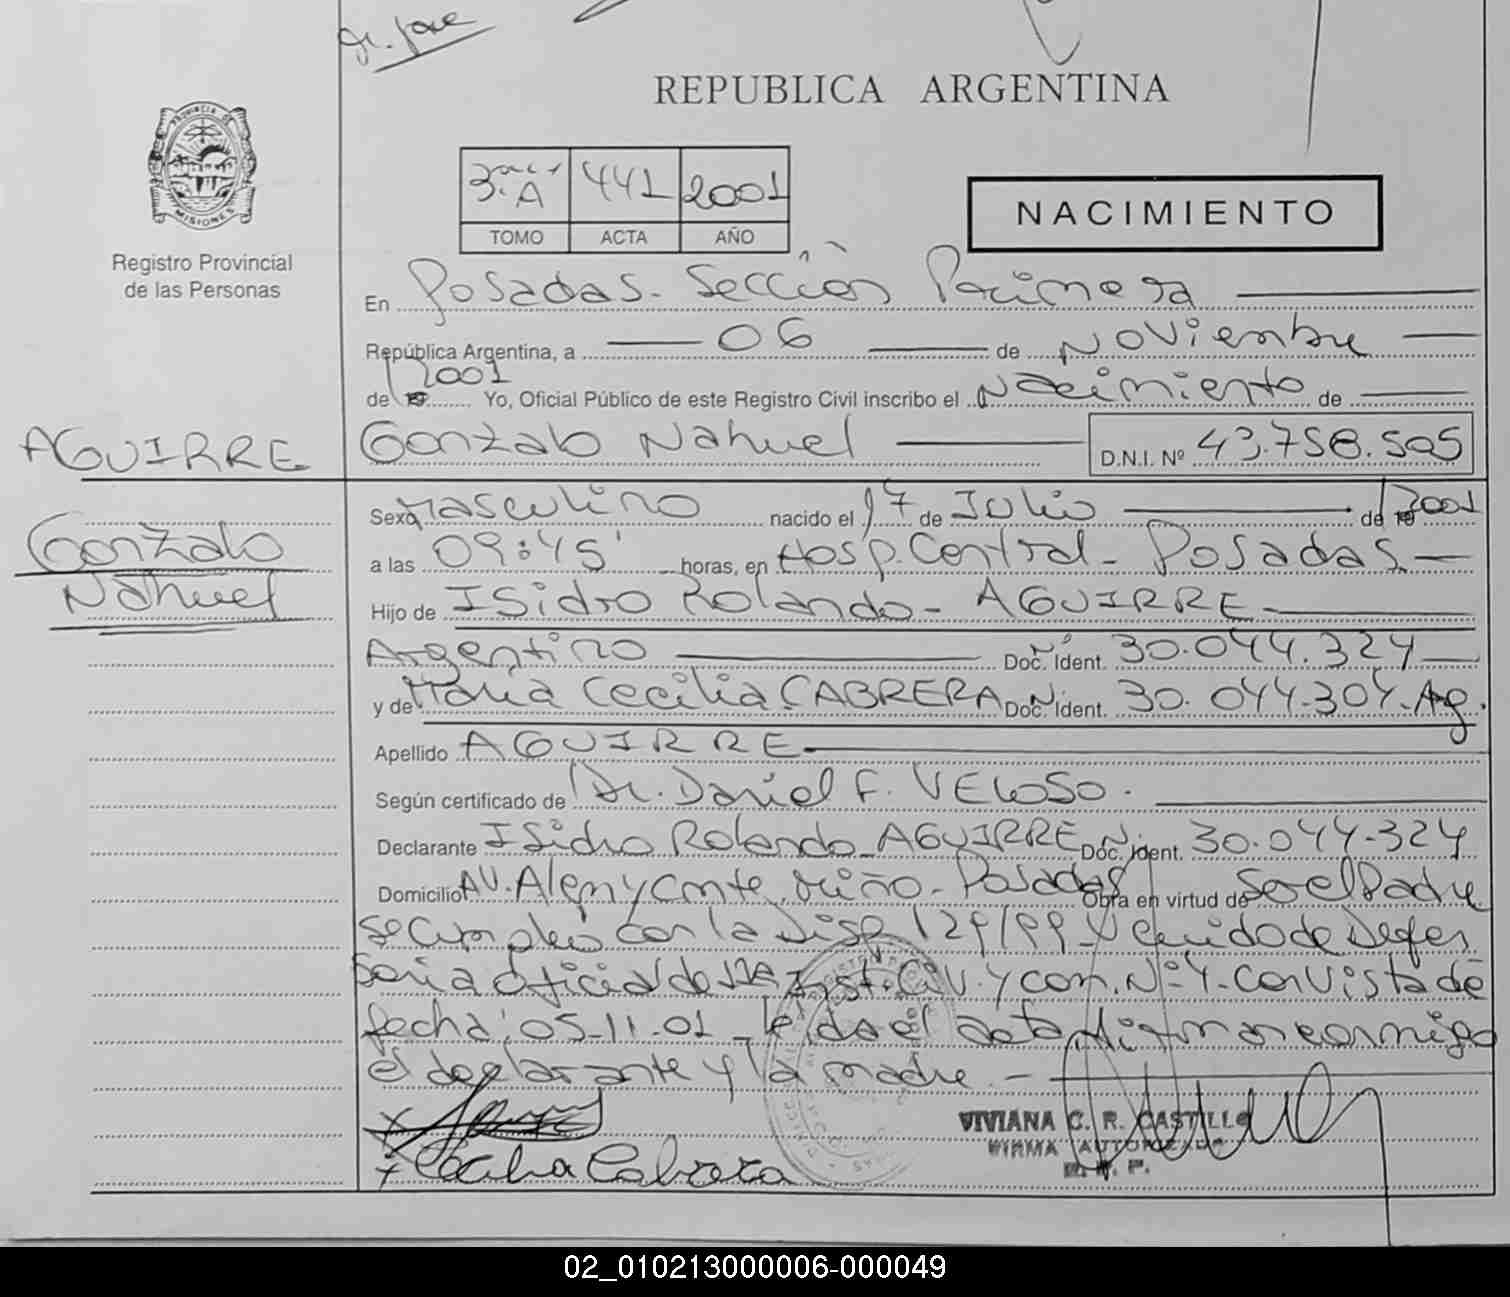 Dr. Jose
REPUBLICA ARGENTINA
PROVINCIA DE
MISIONES
3ª A 441 2001
TOMO ACTA AÑO
NACIMIENTO
Registro Provincial
de las Personas
En Posadas. Sección Primera
República Argentina, a 06 de Noviembre
de 19 2001 Yo, Oficial Público de este Registro Civil inscribo el Nacimiento de
AGUIRRE Gonzalo Nahuel D.N.I. Nº 43.758.505
Sexo Masculino nacido el 17 de Julio de 19 2001
Gonzalo
a las 09:45' horas, en Hosp. Central - Posadas
Nahuel
Hijo de Isidro Rolando - AGUIRRE
Argentino Doc. Ident. Nº 30.044.324
y de María Cecilia CABRERA Doc. Ident. Nº 30.044.304. Ag.
Apellido AGUIRRE
Según certificado de Dr. Daniel F. VELOSO.
Declarante Isidro Rolando AGUIRRE Doc. Ident. N. 30.044.324
Domicilio AV. Alem y Cmte. Miño - Posadas Obra en virtud de Ser el Padre
se cumplió con la Disp. 129/99 Venido de Defen
soria oficial de 1ra Inst. Civ. y Com. Nº 4. Con vista de
fecha: 05-11-01 leida el acta firman conmigo
el declarante y la madre. -
Cecilia Cabrera
VIVIANA C. R. CASTILLO
FIRMA AUTORIZADA
R. P. P.
02_010213000006-000049